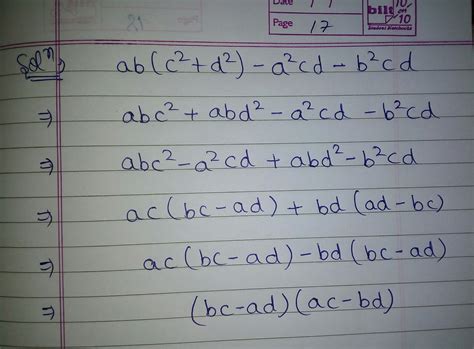 Date / /
Page 17
bilt 10 on 10
Student Notebooks
21
Solⁿ, ab(c²+d²) – a²cd – b²cd
⇒ abc² + abd² – a²cd – b²cd
⇒ abc² – a²cd + abd² – b²cd
⇒ ac(bc–ad) + bd(ad–bc)
⇒ ac(bc–ad) – bd(bc–ad)
⇒ (bc–ad)(ac–bd)